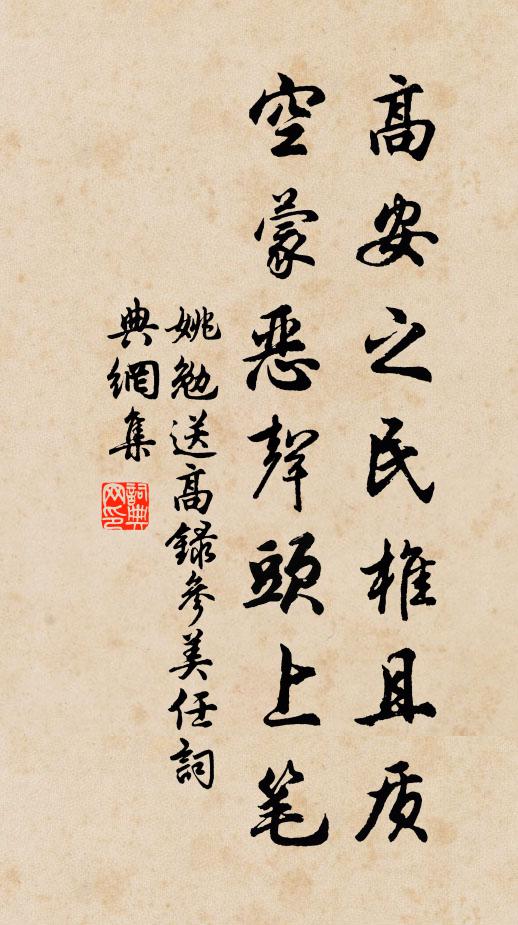 高安之民椎且质
空蒙惡聲頭上笔
姚勉送高録參美任詞
典網集
詞典
网印